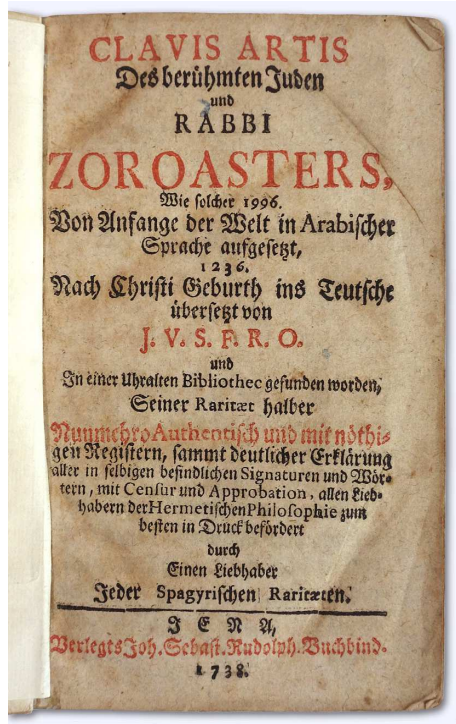 CLAVIS ARTIS
Des berühmten Juden
und
RABBI
ZOROASTERS,
Wie solcher 1996.
Von Anfange der Welt in Arabischer
Sprache aufgesetzt,
1236.
Nach Christi Geburth ins Teutsche
übersetzt von
J. V. S. F. R. O.
und
In einer Uhralten Bibliothec gefunden worden,
Seiner Raritæt halber
Nunmehro Authentisch und mit nöthi-
gen Registern, sammt deutlicher Erklärung
aller in selbigen befindlichen Signaturen und Wör-
tern, mit Censur und Approbation, allen Lieb-
habern der Hermetischen Philosophie zum
besten in Druck befördert
durch
Einen Liebhaber
Jeder Spagyrischen Raritæten.
JENA,
Verlegts Joh. Sebast. Rudolph. Buchbind.
1738.